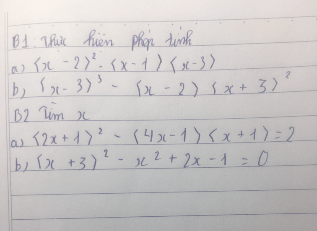 B1. Thực hiện phép tính
a) (x - 2)² - (x - 1) (x - 3)
b) (x - 3)³ - (x - 2) (x + 3)²
B2 Tìm x
a) (2x + 1)² - (4x - 1) (x + 1) = 2
b) (x + 3)² - x² + 2x - 1 = 0